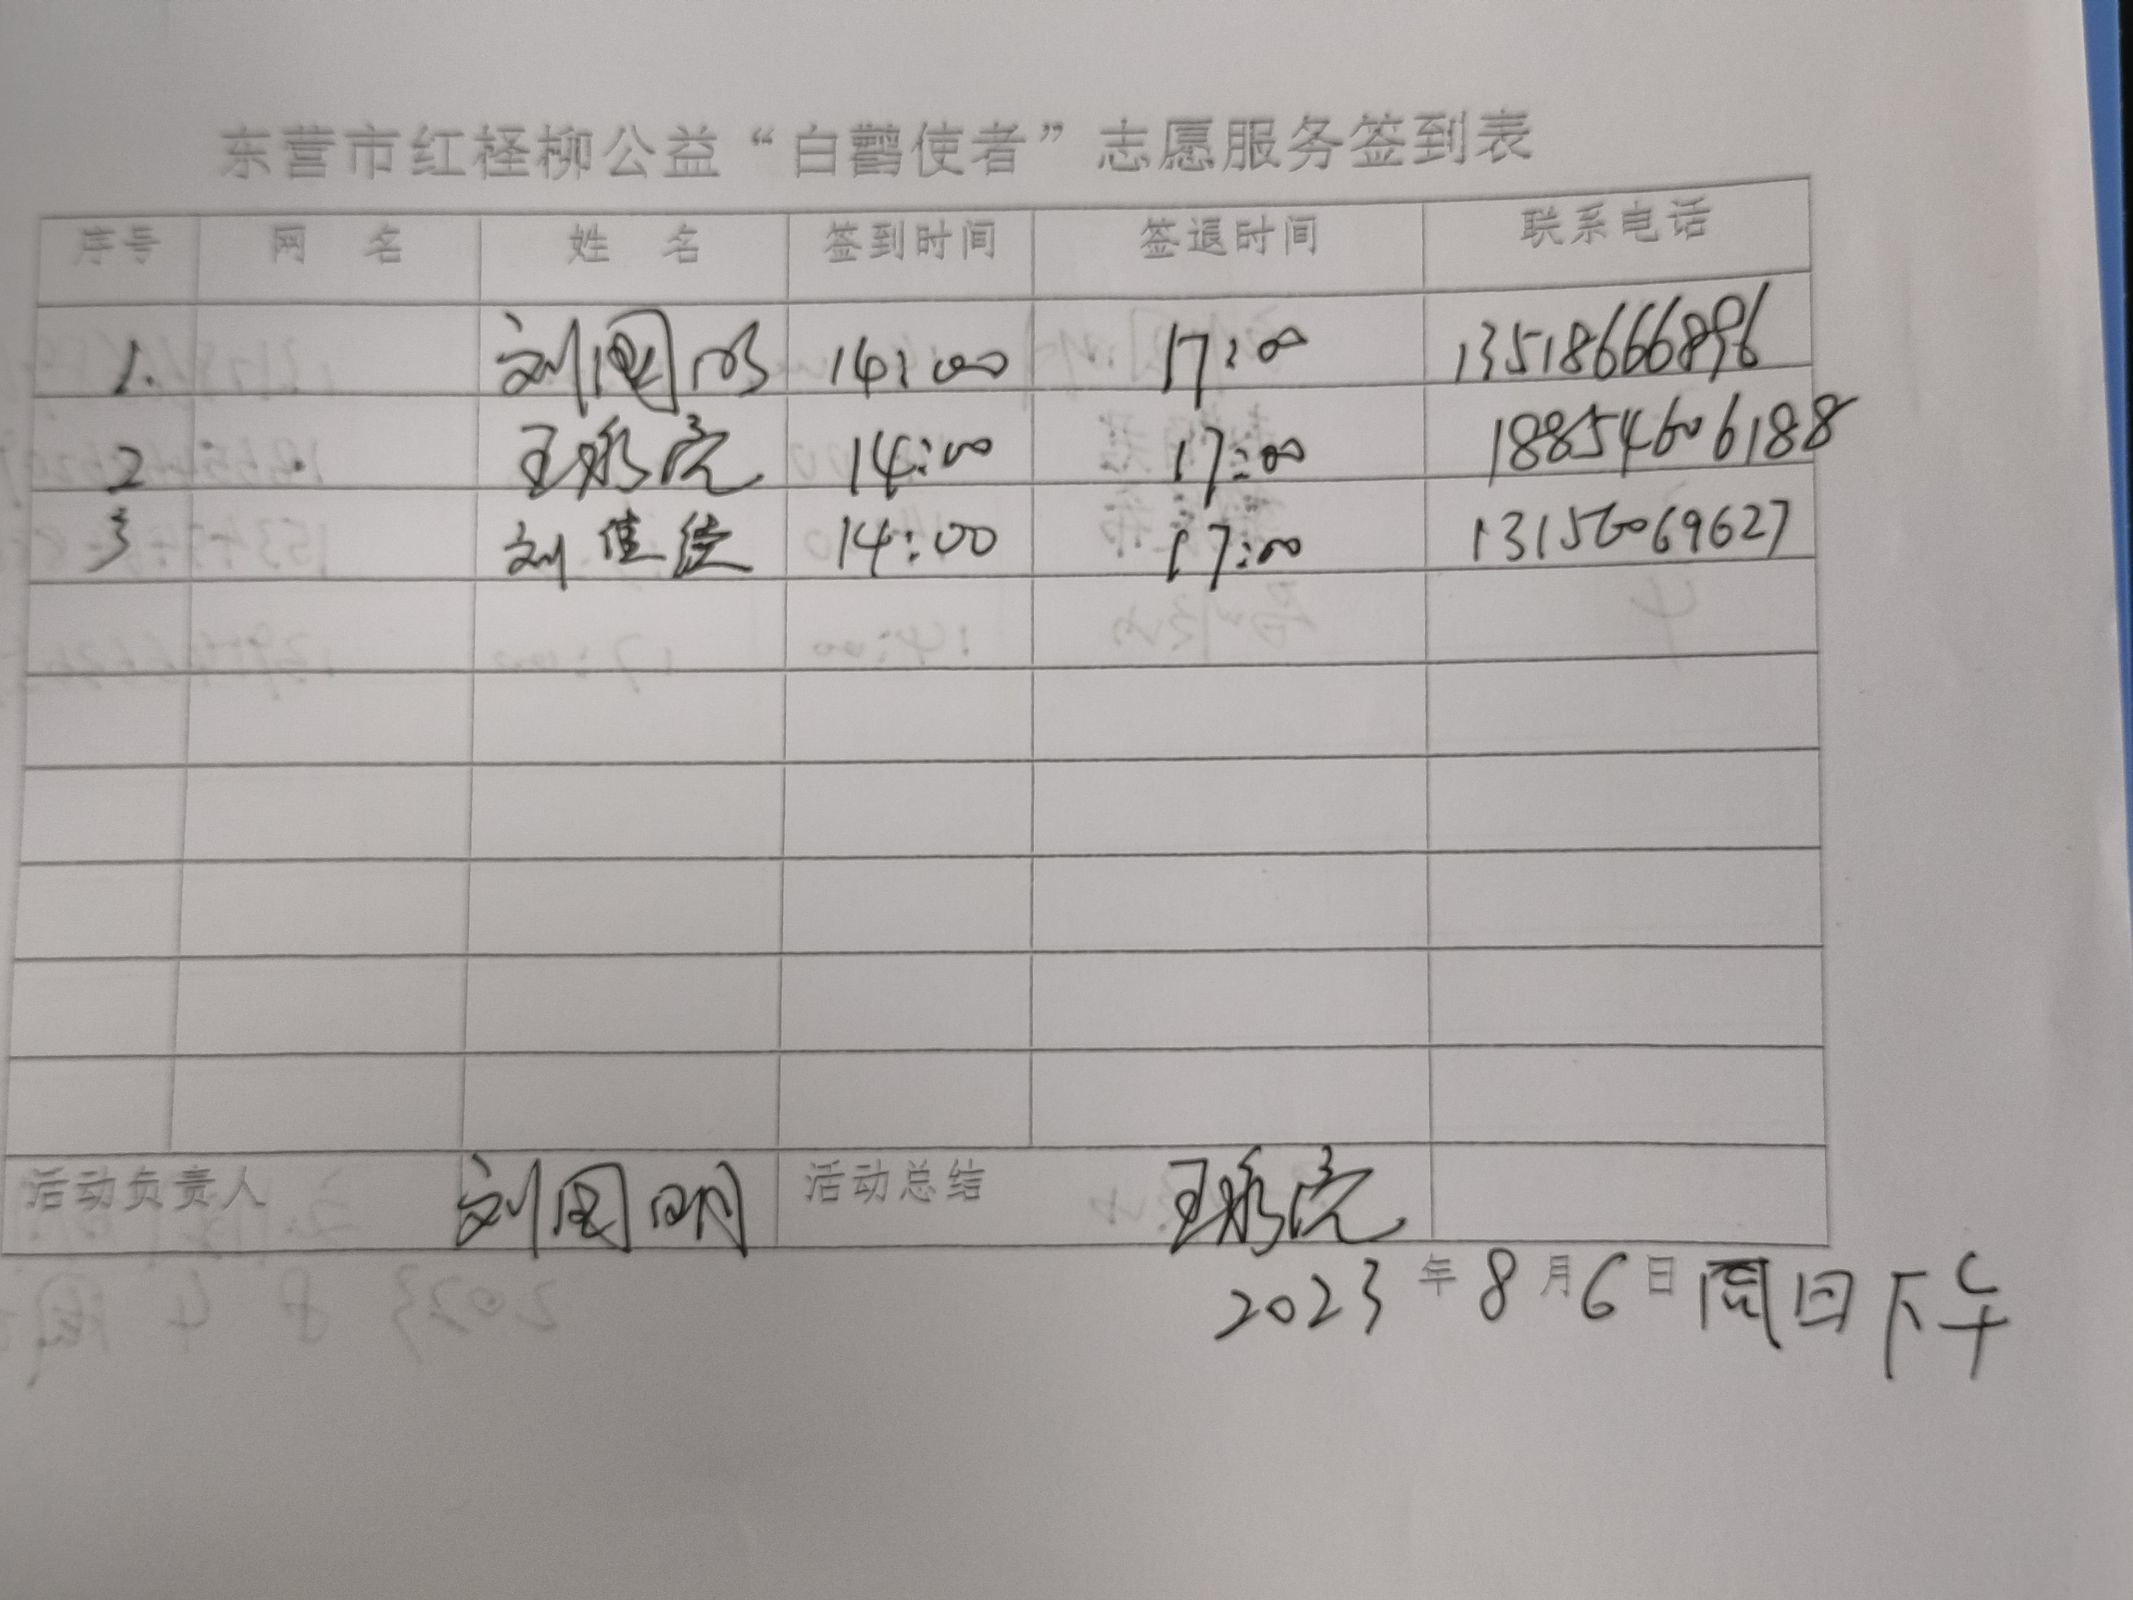 东营市红柽柳公益“白鹳使者”志愿服务签到表
序号 网 名 姓 名 签到时间 签退时间 联系电话
1. 刘国明 14:00 17:00 13518666896
2 王 14:00 17:00 18854606188
3 刘佳 14:00 17:00 13156069627
活动负责人 刘国明 活动总结 王
2023年8月6日周日下午